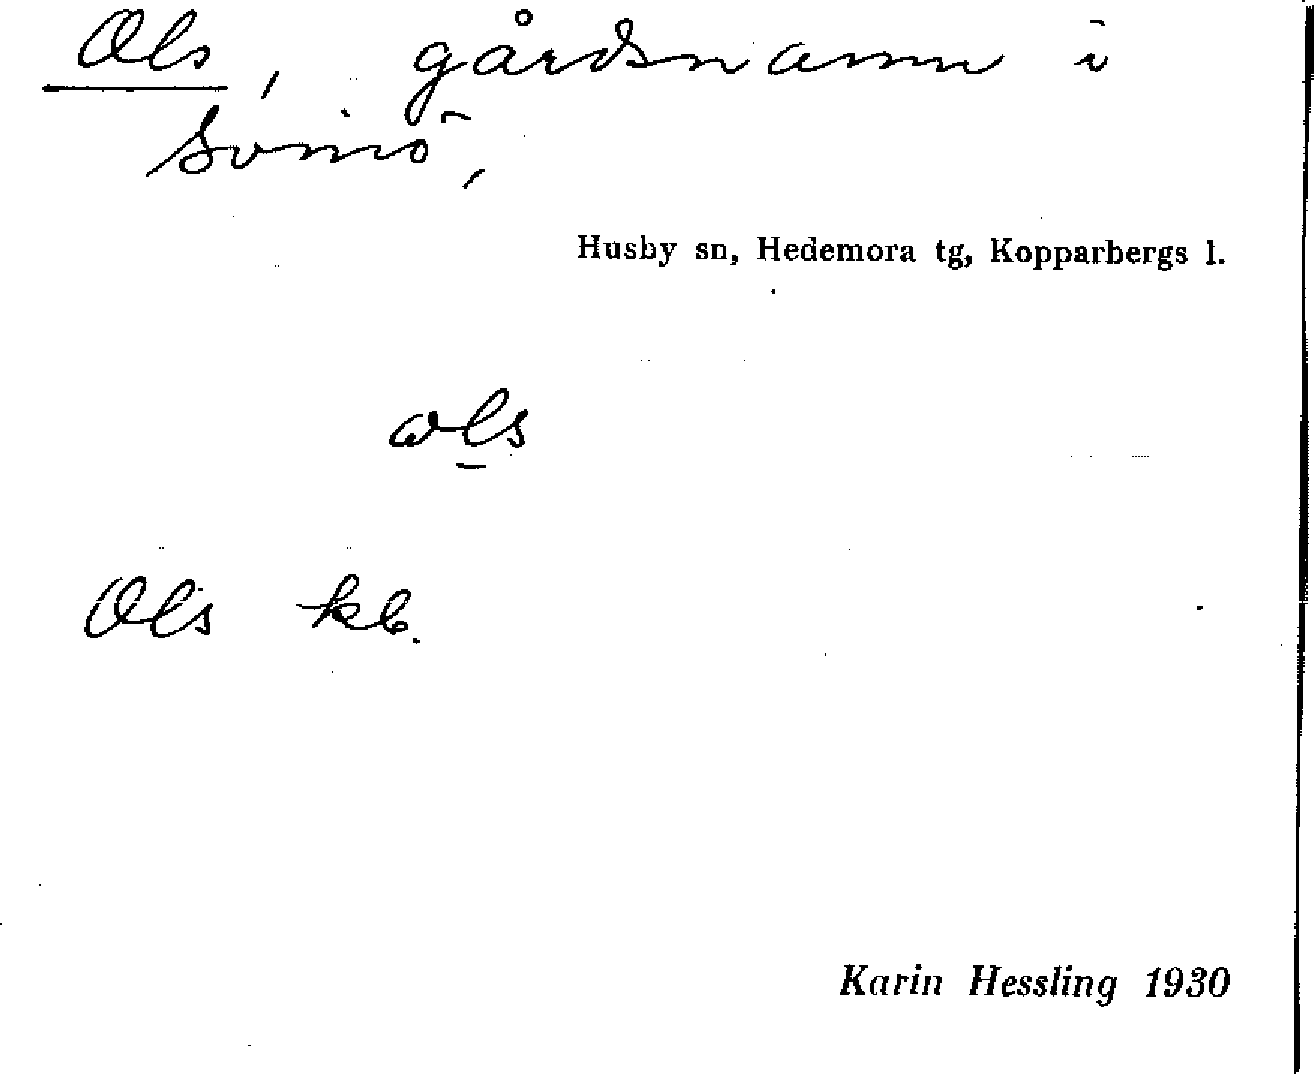 Ols, gårdsnamn i
Svinö,
Husby sn, Hedemora tg, Kopparbergs l.
ωls
Ols kb.
Karin Hessling 1930